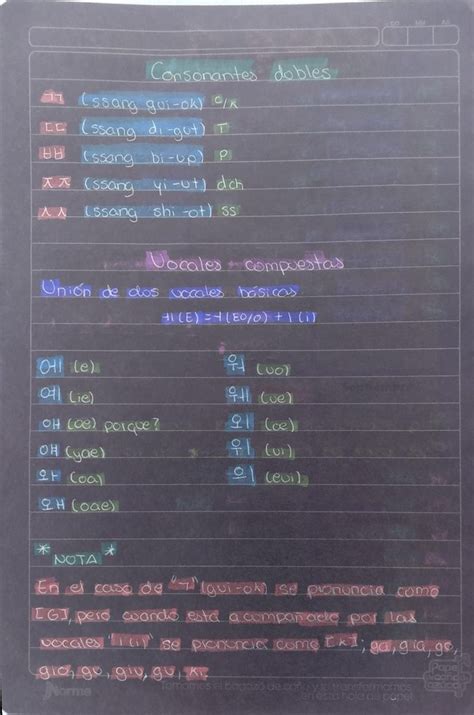 Consonantes dobles
ㄲ (ssang gui-ok) c/k
ㄸ (ssang di-gut) T
ㅃ (ssang bi-up) P
ㅉ (ssang yi-ut) dch
ㅆ (ssang shi-ot) ss
Vocales compuestas
Unión de dos vocales básicas
ㅔ(E)=ㅓ(EO/O)+ㅣ(i)
에 (e) 워 (uo)
예 (ie) 웨 (ue)
애 (ae) porque? 외 (oe)
얘 (yae) 위 (ui)
와 (oa) 의 (eui)
왜 (oae)
* NOTA *
En el caso de "ㄱ" (gui-ok) se pronuncia como
[G], pero cuando está acompañado por las
vocales "ㅣ(i)" se pronuncia como [K]; ga, gia, ge,
gio, go, giu, gu, ki.
Norma
en esta hoja de papel